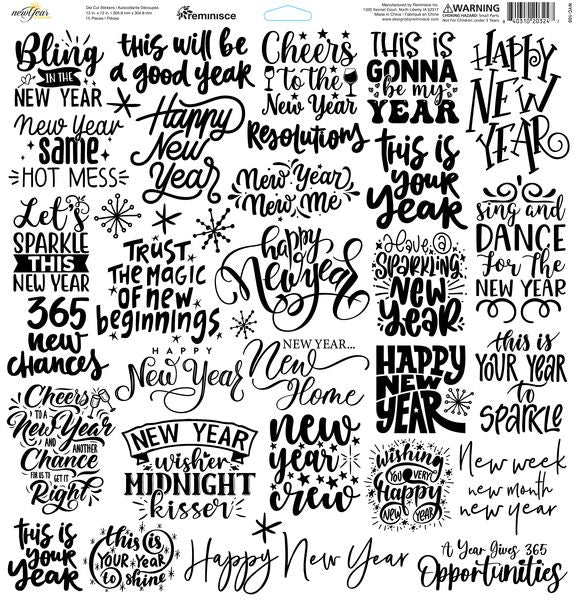 new Year
Die Cut Stickers / Autocollants Découpés
12 in. x 12 in. / 304.8 mm x 304.8 mm
15 Pieces / Pièces
Reminisce
Manufactured by Reminisce Inc.
Made in China / Fabriqué en China
designbyreminisce.com
WARNING
CHOKING HAZARD: Small Parts.
Not For Children Under 3 Years.
NYC-100
Bling
IN THE
NEW YEAR
this will be
a good year
Cheers
to the
New Year
THIS IS
GONNA
be my
YEAR
HAPPY
NEW
YEAR
New Year
same
HOT MESS
Happy
New
Year
Resolutions
New Year
New Me
this is
your
year
Let's
SPARKLE
THIS
NEW YEAR
TRUST
THE MAGIC
OF new
beginnings
happy
New year
Have a
Sparkling
New
Year
sing and
DANCE
For The
NEW YEAR
365
new
chances
HAPPY
New Year
NEW YEAR...
New
Home
HAPPY
NEW
YEAR
this is
YOUR YEAR
to
SPARKLE
Cheers
TO A
New Year
AND ANOTHER
Chance
FOR US TO GET IT
Right
NEW YEAR
wisher
MIDNIGHT
kisser
new
year
crew
wishing
YOU A VERY
Happy
NEW YEAR
New week
new month
new year
this is
your
year
this is
YOUR YEAR
to
shine
Happy New Year
A Year Gives 365
Opportunities